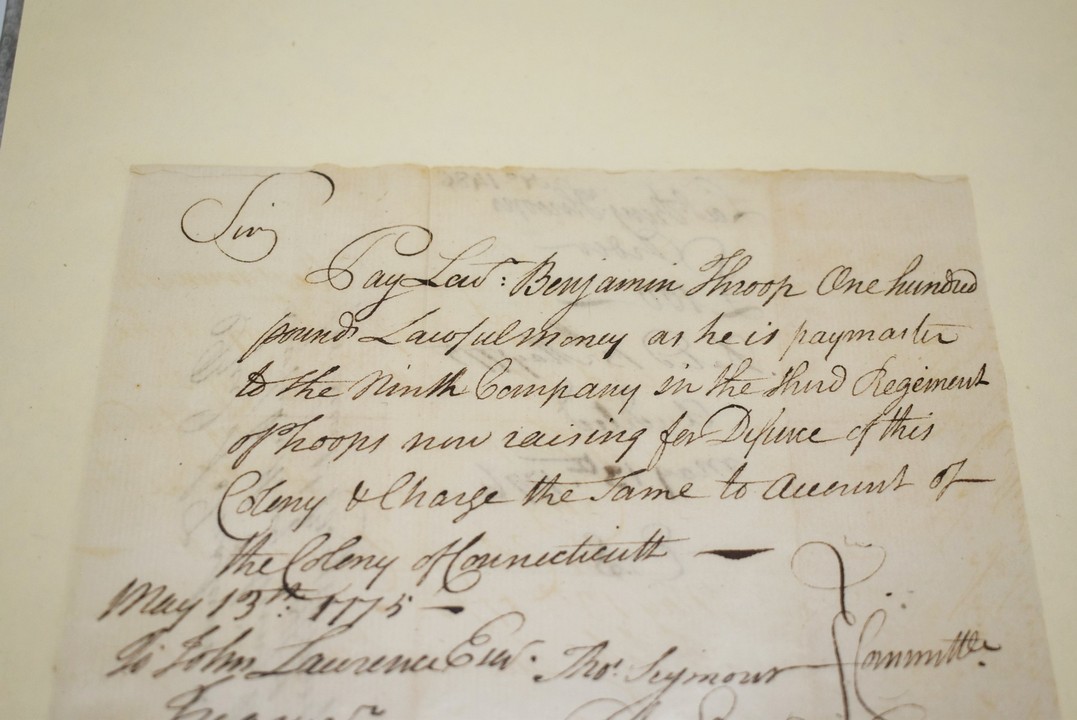 Sir
Pay Lew.t Benjamin Throop One hundred
pounds Lawful money as he is paymaster
to the Ninth Company in the third Regiment
of troops now raising for Defence of this
Colony & Charge the Same to Account of
the Colony of Connecticutt
May 13th 1775
To John Lawrence Esqr. Thos. Seymour Committee